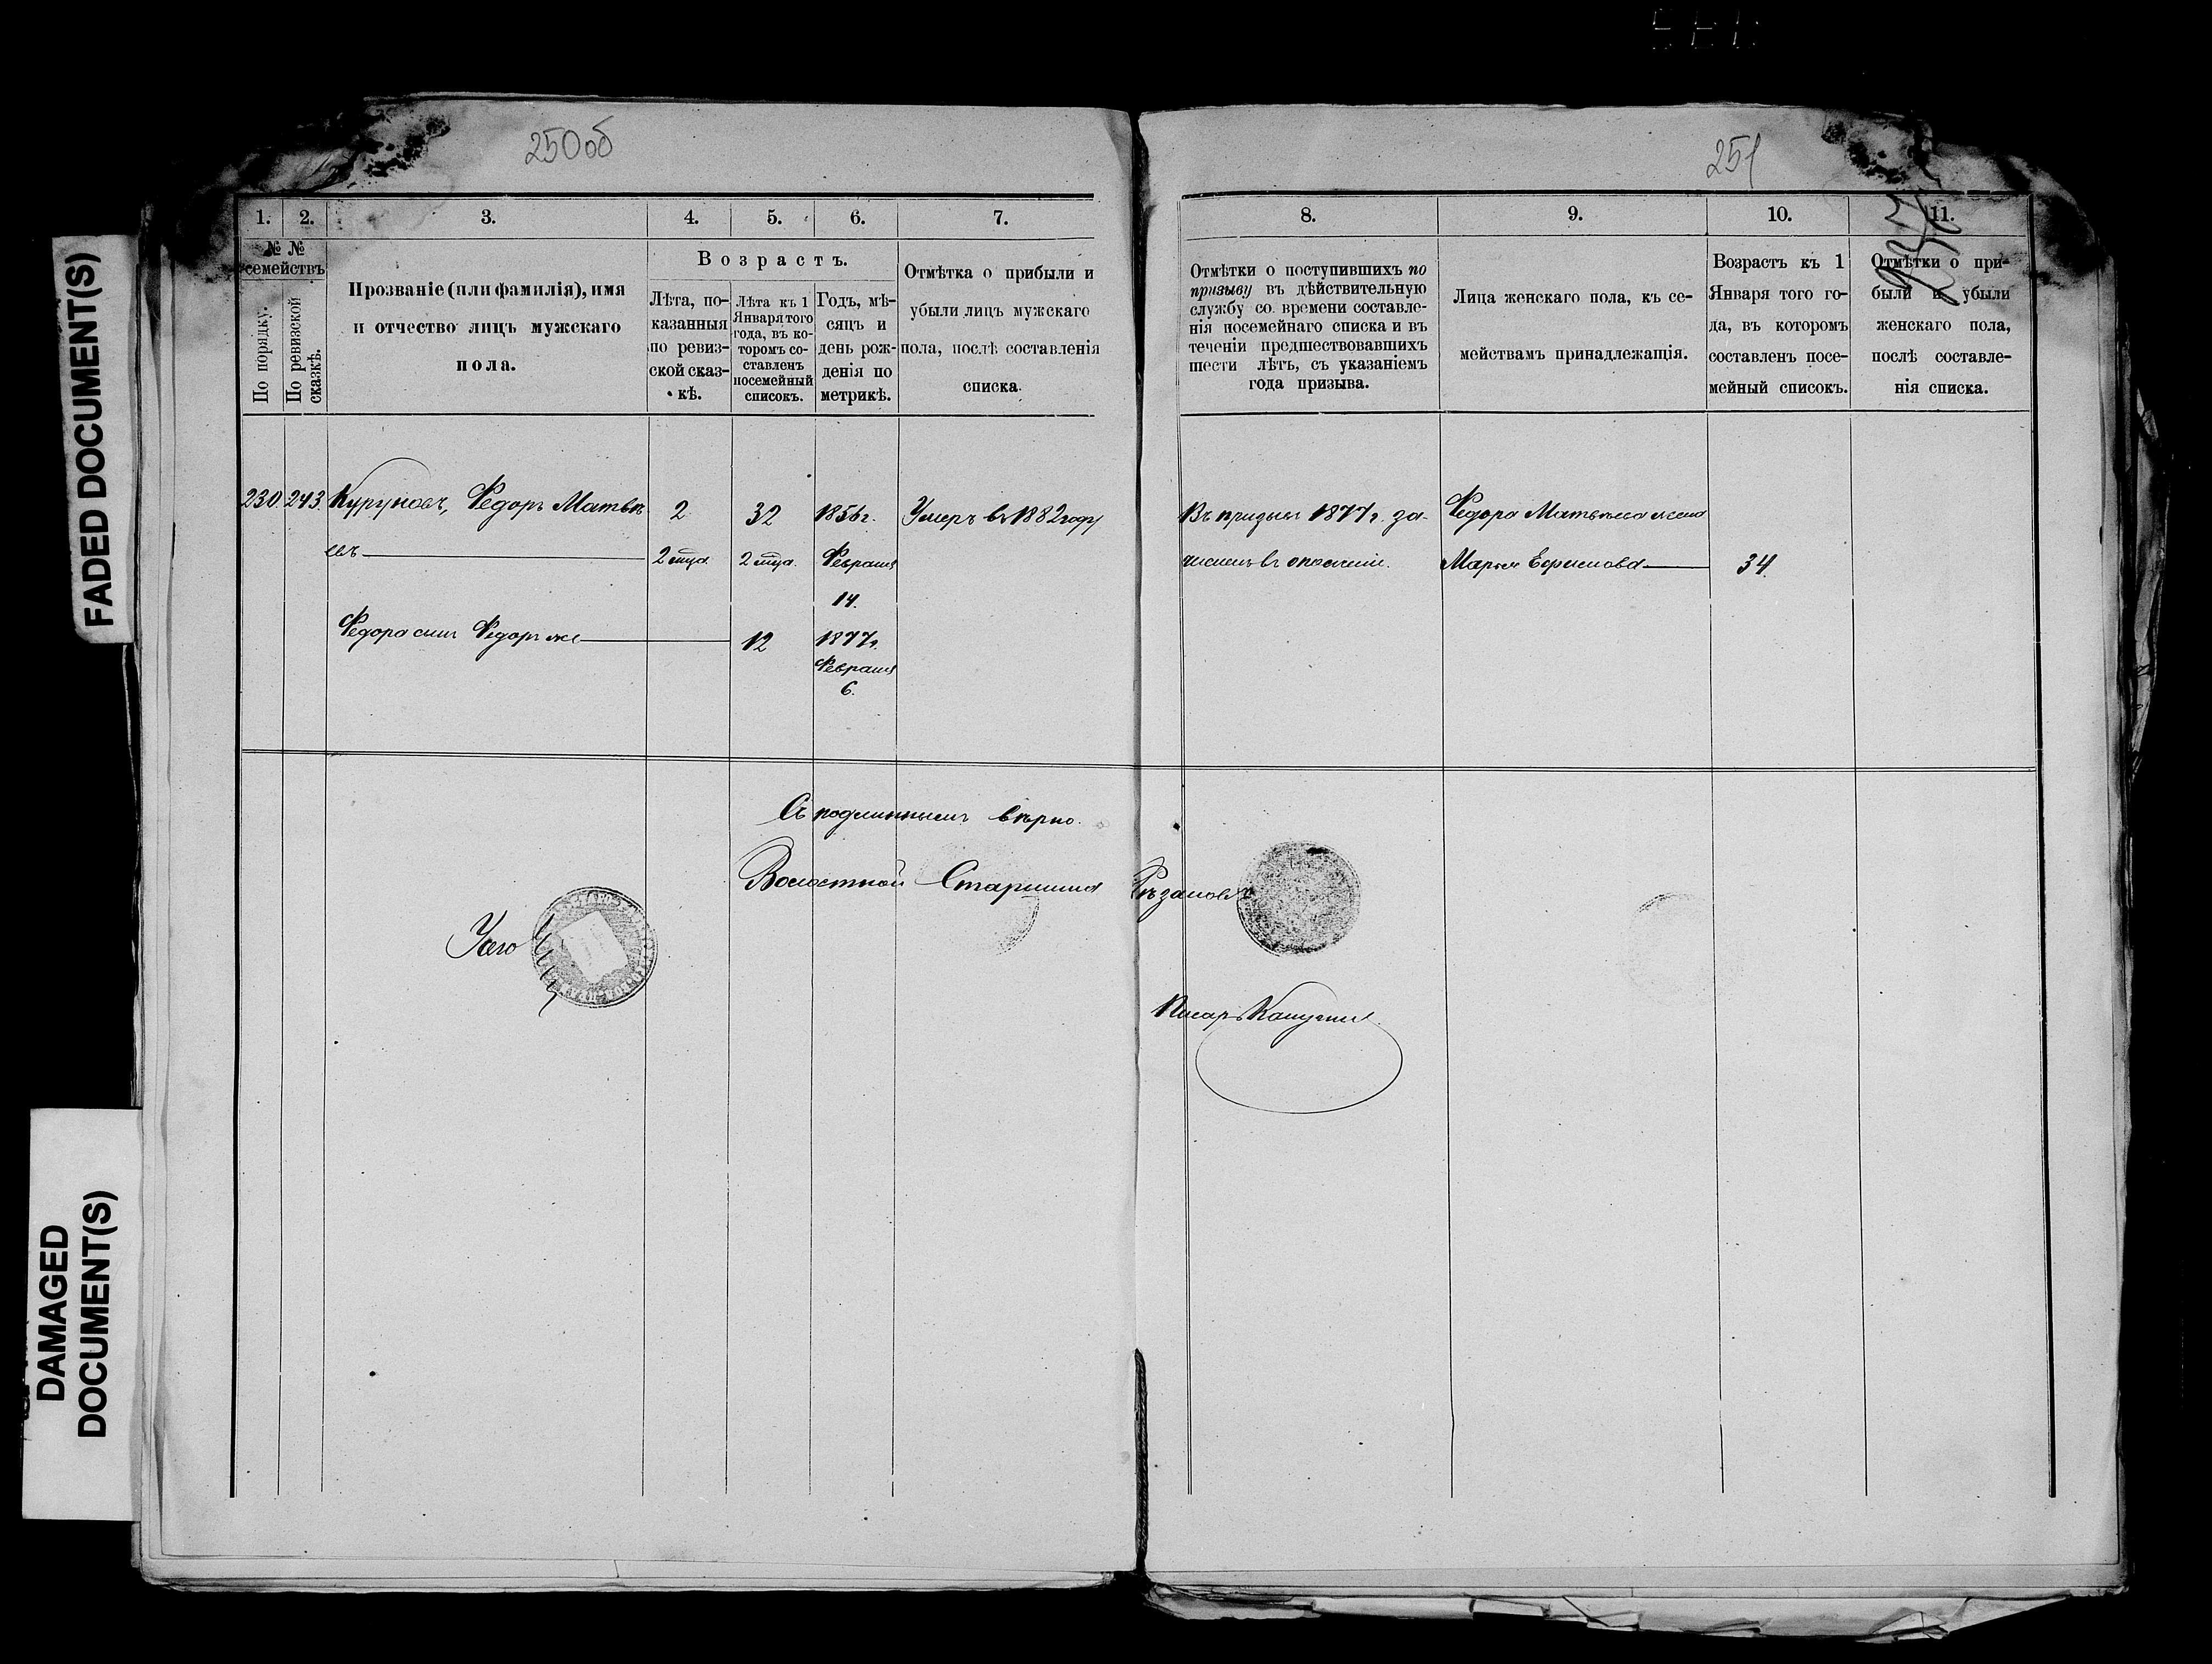 FADED DOCUMENT(S)
DAMAGED
DOCUMENT(S)
250об
251
1. 2. 3. 4. 5. 6. 7.
№ №
семействъ
По порядку.
По ревизской
сказкѣ.
Прозваніе (или фамилія), имя
и отчество лицъ мужскаго
пола.
Возрастъ.
Лѣта, по-
казанныя
по ревиз-
ской сказ-
кѣ.
Лѣта къ 1
Января того
года, въ ко-
торомъ со-
ставленъ
посемейный
списокъ.
Годъ, мѣ-
сяцъ и
день рож-
денія по
метрикѣ.
Отмѣтка о прибыли и
убыли лицъ мужскаго
пола, послѣ составленія
списка.
8. 9. 10. 11.
Отмѣтки о поступившихъ по
призыву въ дѣйствительную
службу со времени составле-
нія посемейнаго списка и въ
теченіи предшествовавшихъ
шести лѣтъ, съ указаніемъ
года призыва.
Лица женскаго пола, къ се-
мействамъ принадлежащія.
Возрастъ къ 1
Января того го-
да, въ которомъ
составленъ посе-
мейный списокъ.
Отмѣтки о при-
были и убыли
женскаго пола,
послѣ составле-
нія списка.
230. 243. Куруновъ, Ѳедоръ Матвѣ 2 32 1856 г. Умеръ въ 1882 году
евъ 2 мца. 2 мца. Февраля
14.
Ѳедора сынъ Ѳедоръ же 12 1877 г.
Февраля
6.
Въ призывъ 1877 г. за- Ѳедора Матвѣева жена
численъ въ ополченіе. Марья Ефимова 34.
Съ подлиннымъ вѣрно.
Волостной Старшина Рѣзановъ
Писарь